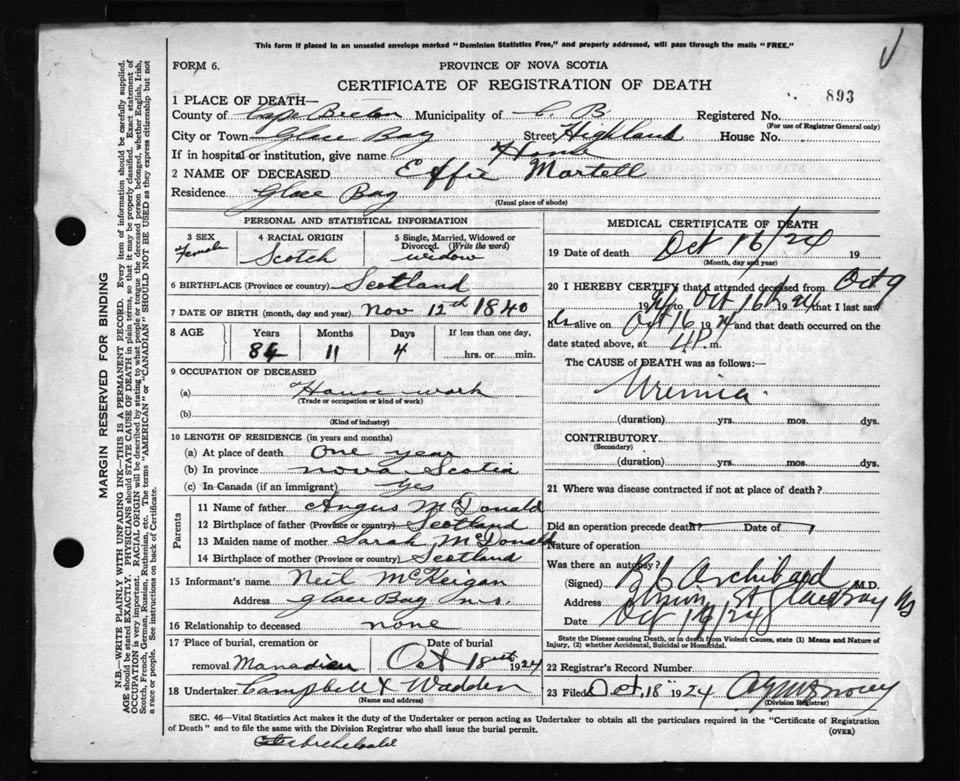 This form if placed in an unsealed envelope marked "Dominion Statistics Free," and properly addressed, will pass through the mails "FREE."
FORM 6.
PROVINCE OF NOVA SCOTIA
CERTIFICATE OF REGISTRATION OF DEATH
893
1 PLACE OF DEATH—
County of Cape Breton Municipality of C. B Registered No.
(For use of Registrar General only)
City or Town Glace Bay Street Highland House No.
If in hospital or institution, give name Home
2 NAME OF DECEASED Effie Martell
Residence Glace Bay
(Usual place of abode)
MARGIN RESERVED FOR BINDING
N.B.—WRITE PLAINLY, WITH UNFADING INK—THIS IS A PERMANENT RECORD. Every item of information should be carefully supplied.
AGE should be stated EXACTLY. PHYSICIANS should STATE CAUSE OF DEATH in plain terms, so that it may be properly classified. Exact statement of
OCCUPATION is very important. RACIAL ORIGIN will be described by stating to what people or tongue the deceased person belonged, whether English, Irish,
Scotch, French, German, Russian, Ruthenian, etc. The terms "AMERICAN" or "CANADIAN" SHOULD NOT BE USED as they express citizenship but not
a race or people. See instructions on back of Certificate.
PERSONAL AND STATISTICAL INFORMATION
3 SEX
Female
4 RACIAL ORIGIN
Scotch
5 Single, Married, Widowed or
Divorced. (Write the word)
widow
6 BIRTHPLACE (Province or country) Scotland
7 DATE OF BIRTH (month, day and year) Nov 12th 1840
8 AGE
Years Months Days If less than one day,
84 11 4 hrs. or min.
9 OCCUPATION OF DECEASED
(a) House work
(Trade or occupation or kind of work)
(b)
(Kind of industry)
10 LENGTH OF RESIDENCE (in years and months)
(a) At place of death one year
(b) In province nova Scotia
(c) In Canada (if an immigrant) yes
Parents
11 Name of father Angus McDonald
12 Birthplace of father (Province or country) Scotland
13 Maiden name of mother Sarah McDonald
14 Birthplace of mother (Province or country) Scotland
15 Informant's name Neil McKeigan
Address Glace Bay N.S.
16 Relationship to deceased none
17 Place of burial, cremation or
removal
Date of burial
Oct 18 1924
18 Undertaker Campbell & Wadden
(Name and address)
MEDICAL CERTIFICATE OF DEATH
19 Date of death Oct 16/24 19
(Month, day and year)
20 I HEREBY CERTIFY that I attended deceased from Oct 9
1924 to Oct 16th 1924 that I last saw
h alive on Oct 16 1924 and that death occurred on
date stated above, at 4 P. m.
The CAUSE of DEATH was as follows:
Uremia
(duration) yrs. mos. dys.
CONTRIBUTORY
(Secondary)
(duration) yrs. mos. dys.
21 Where was disease contracted if not at place of death?
Did an operation precede death? Date of
Nature of operation
Was there an autopsy?
(Signed) Archibald M.D.
Address Union St Glace Bay NS
Date Oct 19/24
State the Disease causing Death, or in death from Violent Causes, state (1) Means and Nature of
Injury, (2) whether Accidental, Suicidal or Homicidal.
22 Registrar's Record Number
23 Filed Oct. 18" 1924
(Division Registrar)
SEC. 46—Vital Statistics Act makes it the duty of the Undertaker or person acting as Undertaker to obtain all the particulars required in the "Certificate of Registration
of Death" and to file the same with the Division Registrar who shall issue the burial permit.
(OVER)